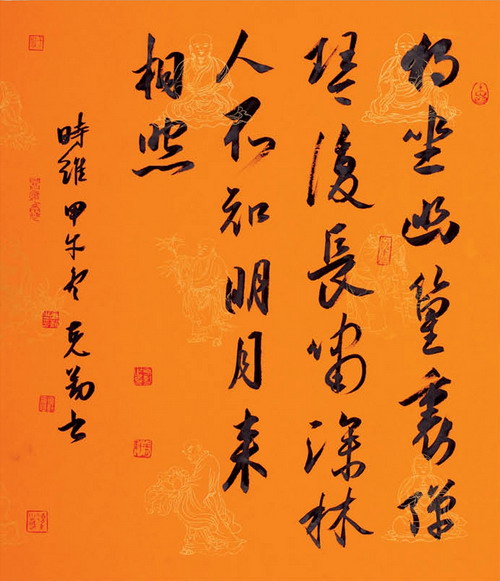 独坐幽篁裏弹
琴復長嘯深林
人不知明月来
相照
時維甲午 克书